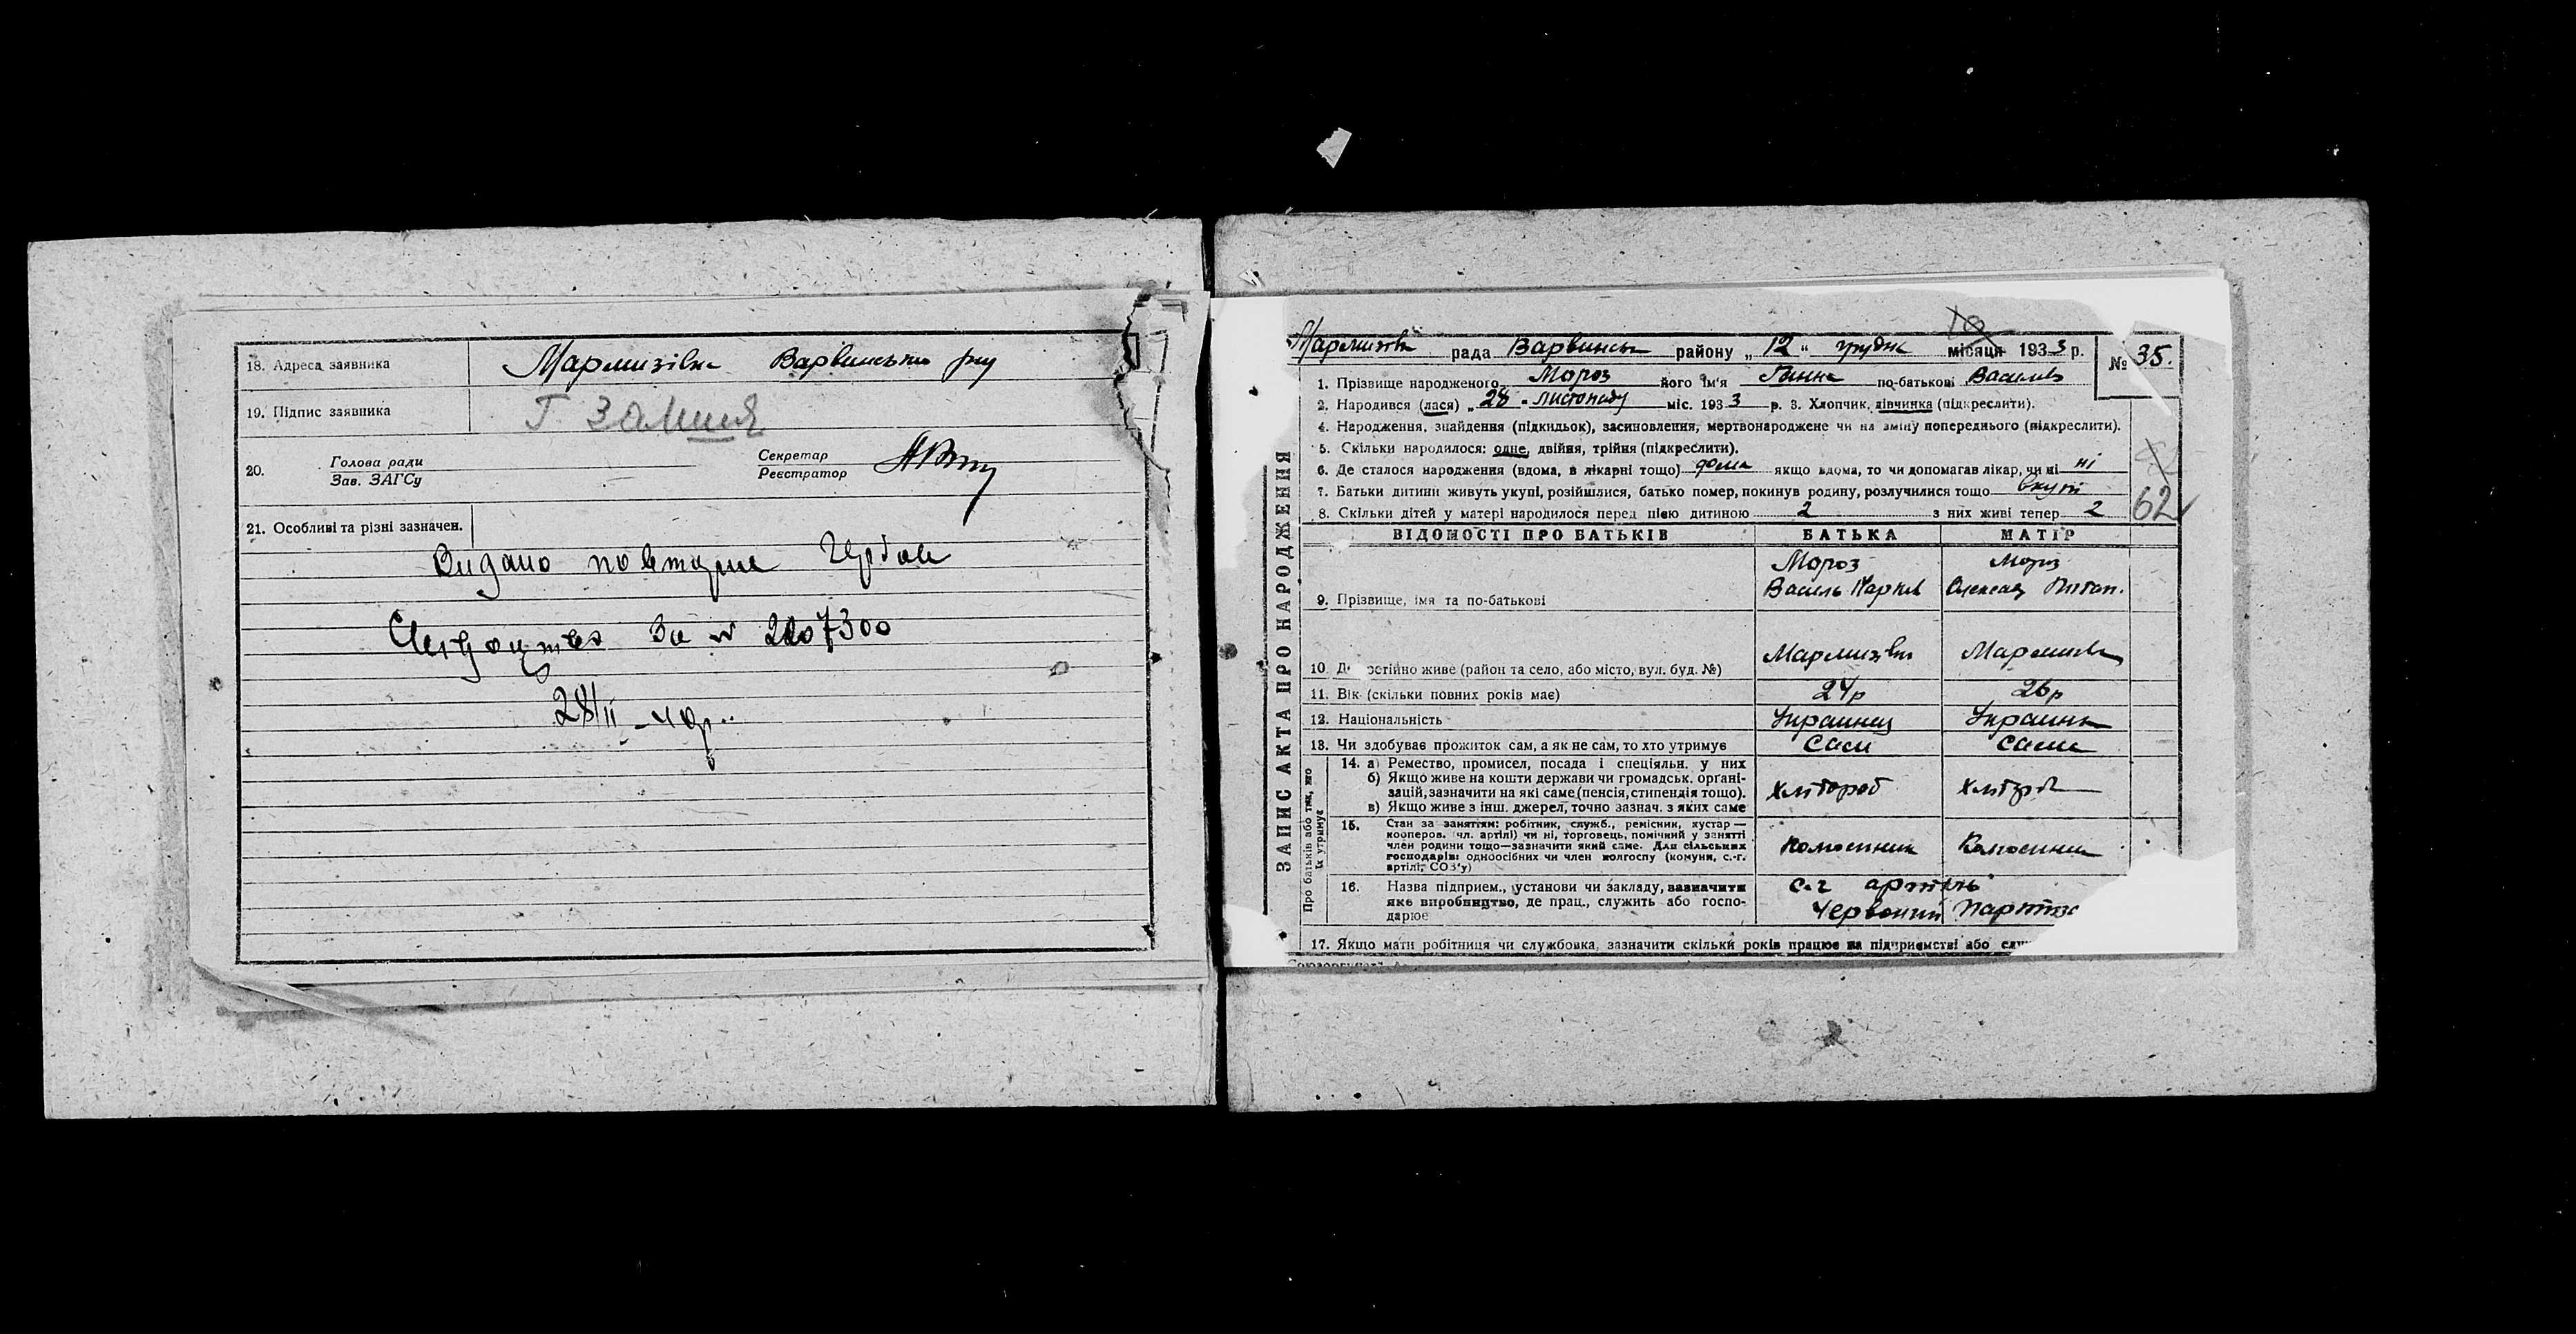 18. Адреса заявника Мармизівка Варвинськи рну
19. Підпис заявника Г
20. Голова ради
Зав. ЗАГСу
Секретар
Реєстратор
21. Особливі та різні зазначен.
Видано повторне
за № 2207300
28/II - 40р.
ЗАПИС АКТА ПРО НАРОДЖЕННЯ
Мармизівк рада Варвинськ району „ 12 “ грудня місяця 1933 р. № 35.
1. Прізвище народженого Мороз його ім'я Ганна по-батькові Василів
2. Народився (лася) „ 28 “ листопаду міс. 1933 р. 3. Хлопчик, дівчинка (підкреслити).
4. Народження, знайдення (підкидьок), засиновлення, мертвонароджене чи на зміну попереднього (підкреслити).
5. Скільки народилося: одне, двійня, трійня (підкреслити).
6. Де сталося народження (вдома, в лікарні тощо) дома якщо вдома, то чи допомагав лікар, чи ні ні
7. Батьки дитини живуть укупі, розійшлися, батько помер, покинув родину, розлучилися тощо вкупі
8. Скільки дітей у матері народилося перед цією дитиною 2 з них живі тепер 2
62
ВІДОМОСТІ ПРО БАТЬКІВ БАТЬКА МАТІР
9. Прізвище, імя та по-батькові
Мороз Мороз
Василь Карпов Олександ Потап.
10. Д стійно живе (район та село, або місто, вул. буд. №) Мармизівк Мармизівк
11. Вік (скільки повних років має) 24р 26р
12. Національність Украинец Украинк
13. Чи здобуває прожиток сам, а як не сам, то хто утримує Сам сама
Про батьків або тих, хто їх утримує
14. а) Ремество, промисел, посада і спеціяльн. у них
б) Якщо живе на кошти держави чи громадськ. орґані-
зацій, зазначити на які саме (пенсія, стипендія тощо).
в) Якщо живе з інш. джерел, точно зазнач. з яких саме
хлібороб хлібороб
15. Стан за заняттям: робітник, служб., ремісник, кустар —
кооперов. (чл. артілі) чи ні, торговець, помічний у занятті
член родини тощо—зазначити який саме. Для сільських
господарів: одноосібних чи член колгоспу (комуни, с.-г.
артілі, СОЗ'у)
колгоспник Колгоспни
16. Назва підприєм., установи чи закладу, зазначити
яке виробництво, де прац., служить або госпо-
дарює
с.г артіль
Червоний Партиза
17. Якщо мати робітниця чи службовка, зазначити скільки років працює на підприємстві або